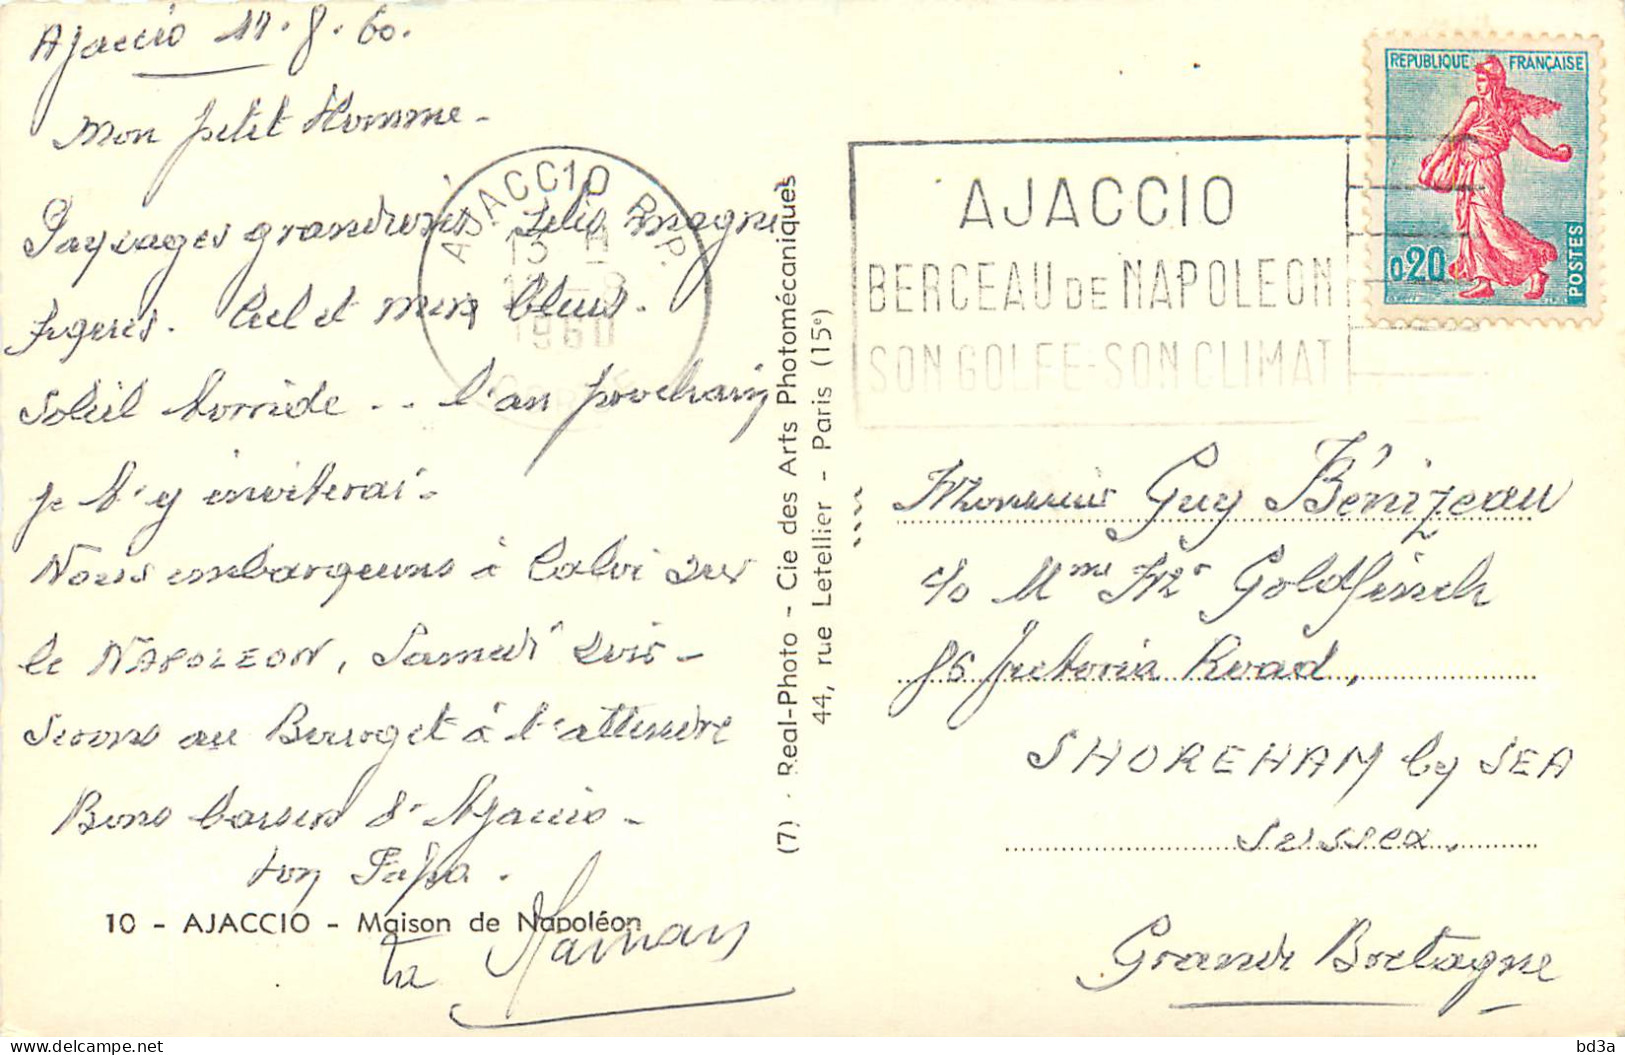 Ajaccio 11.8.60.
Mon petit Homme -
Paysages grandioses. magni
fiques. Ciel et mer bleus.
Soleil torride .. l'an prochain
je t'y inviterai -
Nous embarquons à Calvi sur
le NAPOLEON, Samedi soir -
Serons au Bourget à t'attendre
Bons baisers d'Ajaccio -
ton Papa.
ta Maman
10 - AJACCIO - Maison de Napoléon
(7) - Real-Photo - Cie des Arts Photomécaniques
44, rue Letellier - Paris (15e)
AJACCIO R.P.
1960
AJACCIO
BERCEAU DE NAPOLEON
SON GOLFE-SON CLIMAT
REPUBLIQUE FRANÇAISE
0,20
POSTES
Monsieur Guy Bénizeau
c/o Mme Mr Goldfinch
86 Victoria Road,
SHOREHAM by SEA
Sussex.
Grande Bretagne
bd3a